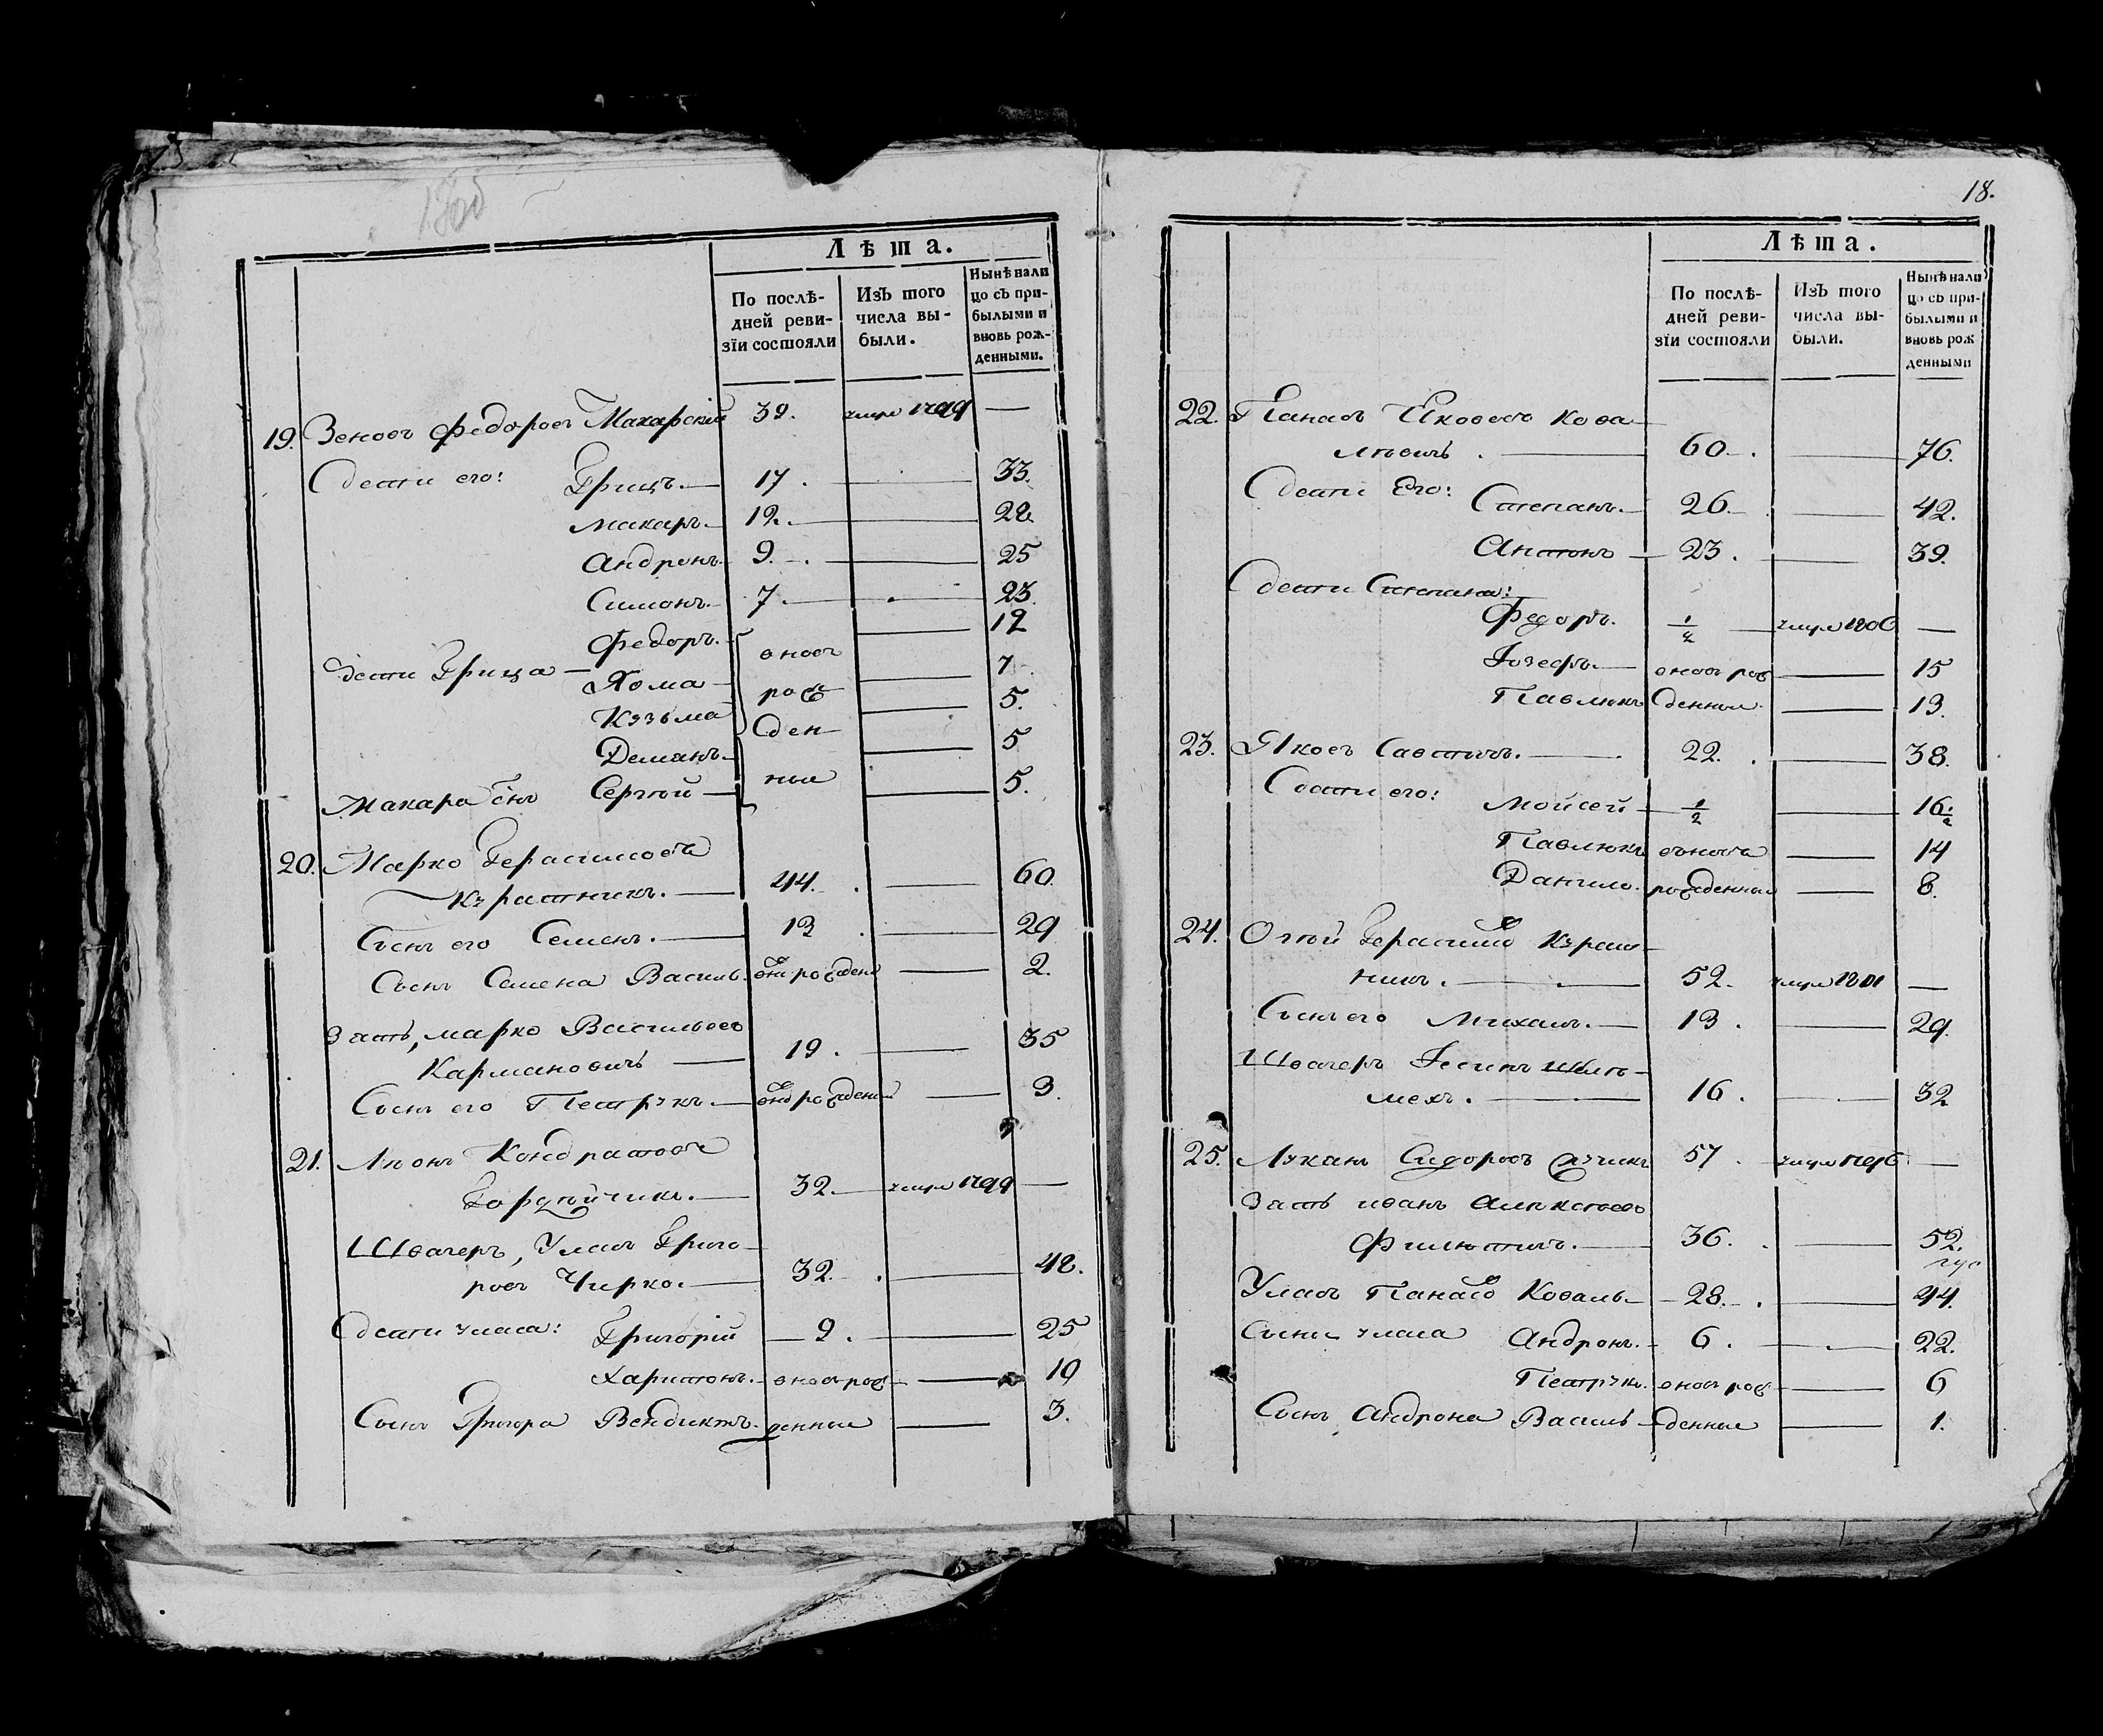 Лѣта.
По послѣдней ревизіи состояли
Изъ того числа выбыли.
Нынѣ налицо съ прибылыми и вновь рожденными.
19. Зеновъ Федоровъ Макарскій 39. умре 1799 —
дети его: Грицъ. — 17. — 33.
Макаръ. — 12. — 28
Андронъ. 9. — 25
Симонъ. — 7. — 23.
Федоръ. — вновь — 12
дети Грица — Хома — рож — 7
Кузьма ден — 5.
Демянъ. — 5
Макара снъ Сергѣй — ные — 5.
20. Марко Герасимовъ
Куратникъ. — 44. — 60.
Сынъ его Семенъ. — 13 — 29
Сынъ Семена Василь. внврожден — 2.
Зять, марко Васильевъ
Кармановичъ — 19. — 35
Сынъ его Петрукъ. — внврожден — 3.
21. Леонъ Кондратовъ
32. — умре 1799 —
Швагеръ, Уласъ Григо-
ровъ Чирко. — 32. — 48.
дети уласа: Григорій — 9. — 25
Харитонъ. — вновь рож — 10
Сынъ Григора Вендиктъ. денные — 3.
18.
Лѣта.
По послѣдней ревизіи состояли
Изъ того числа выбыли.
Нынѣ налицо съ прибылыми и вновь рожденными
22. Панасъ Яковъ Кова-
60. — 76.
дети Его: Степанъ. — 26. — 42.
Антонъ — 23. — 39.
дети Степана:
Федоръ. ½ — умре 1806 —
Іозефъ. — вновь рож — 15
Павлюкъ денные — 13.
23. Яковъ Савтичъ. — 22. — 38.
дети его: Мойсей — ½ — 16½
Павлюкъ вънові — 14
Данило. рожденные — 8.
24. Герасимо Курат-
никъ. — 52. умре 1801 —
Сынъ его Михаль. — 13. — 29.
Швагеръ
мехъ. — 16. — 32
25. Луканъ Сидоровъ 57. умре 1796 —
Зять иванъ Алексѣевъ
36. — 52.
Уласъ Панасо Коваль — 28. — 44.
Сыни уласа Андронъ. — 6. — 22.
Петрукъ. вновь рож — 6
Сынъ Андрона Василь — денные — 1.